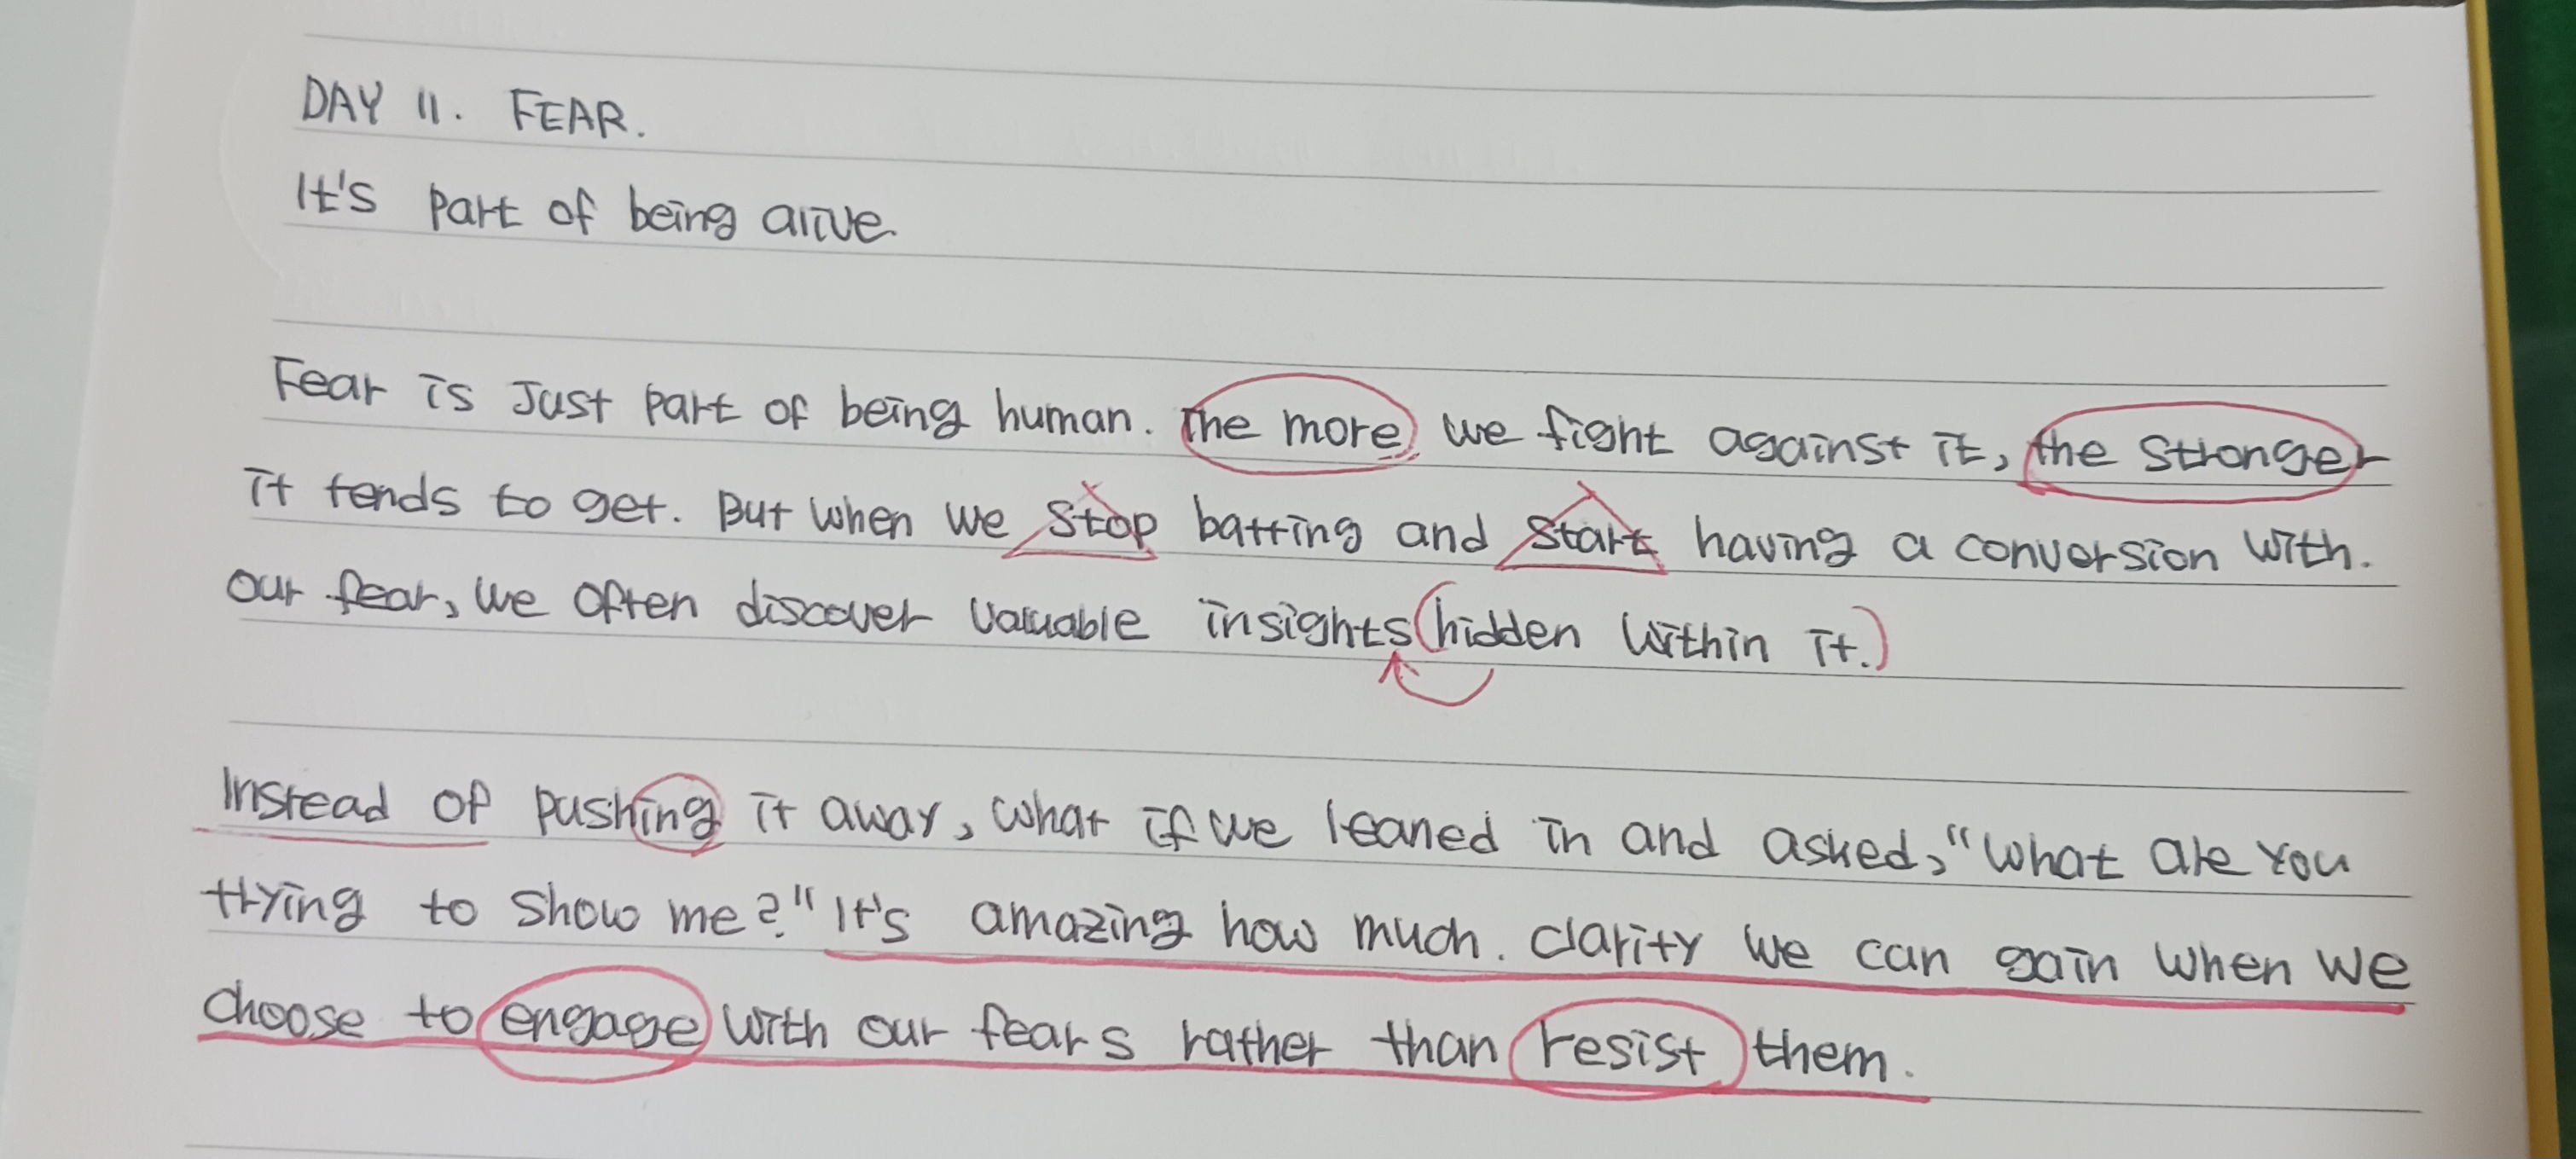 DAY 11. FEAR.
It's part of being alive.
Fear is Just part of being human. The more we fight against it, the stronger
it tends to get. But when we stop batting and start having a conversion with.
our fear, we often discover valuable insights (hidden within it.)
Instead of pushing it away, what if we leaned in and asked, "what are you
trying to show me?" It's amazing how much. clarity we can gain when we
choose to engage with our fears rather than resist them.